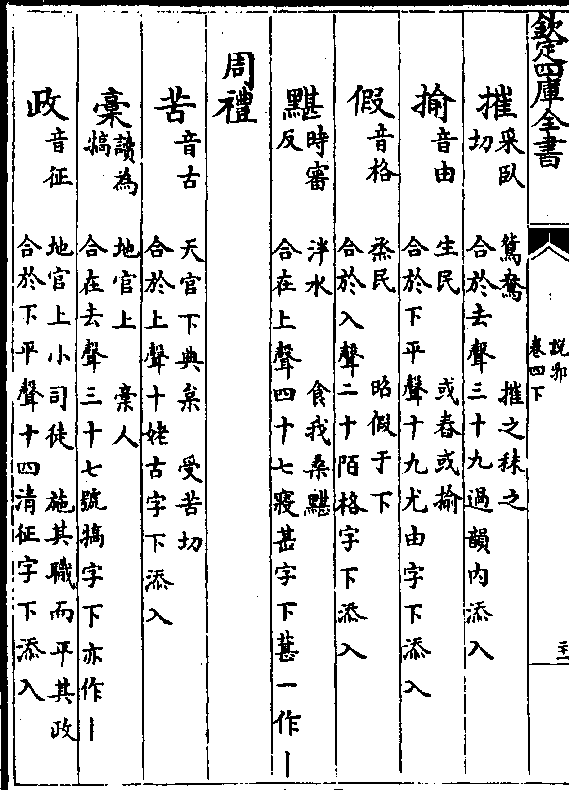 欽定四庫全書
說郛
卷四下
摧
采臥
切
鴛鴦 摧之秣之
合於去聲三十九過韻內添入
揄
音由
生民 或舂或揄
合於下平聲十九尤由字下添入
假
音格
烝民 昭假于下
合於入聲二十陌格字下添入
黮
時審
反
泮水 食我桑黮
合在上聲四十七寢甚字下葚一作丨
周禮
苦
音古
天官下典枲 受苦功
合於上聲十姥古字下添入
槀
讀為
犒
地官上 槀人
合在去聲三十七號犒字下亦作丨
政
音征
地官上小司徒 施其職而平其政
合於下平聲十四清征字下添入